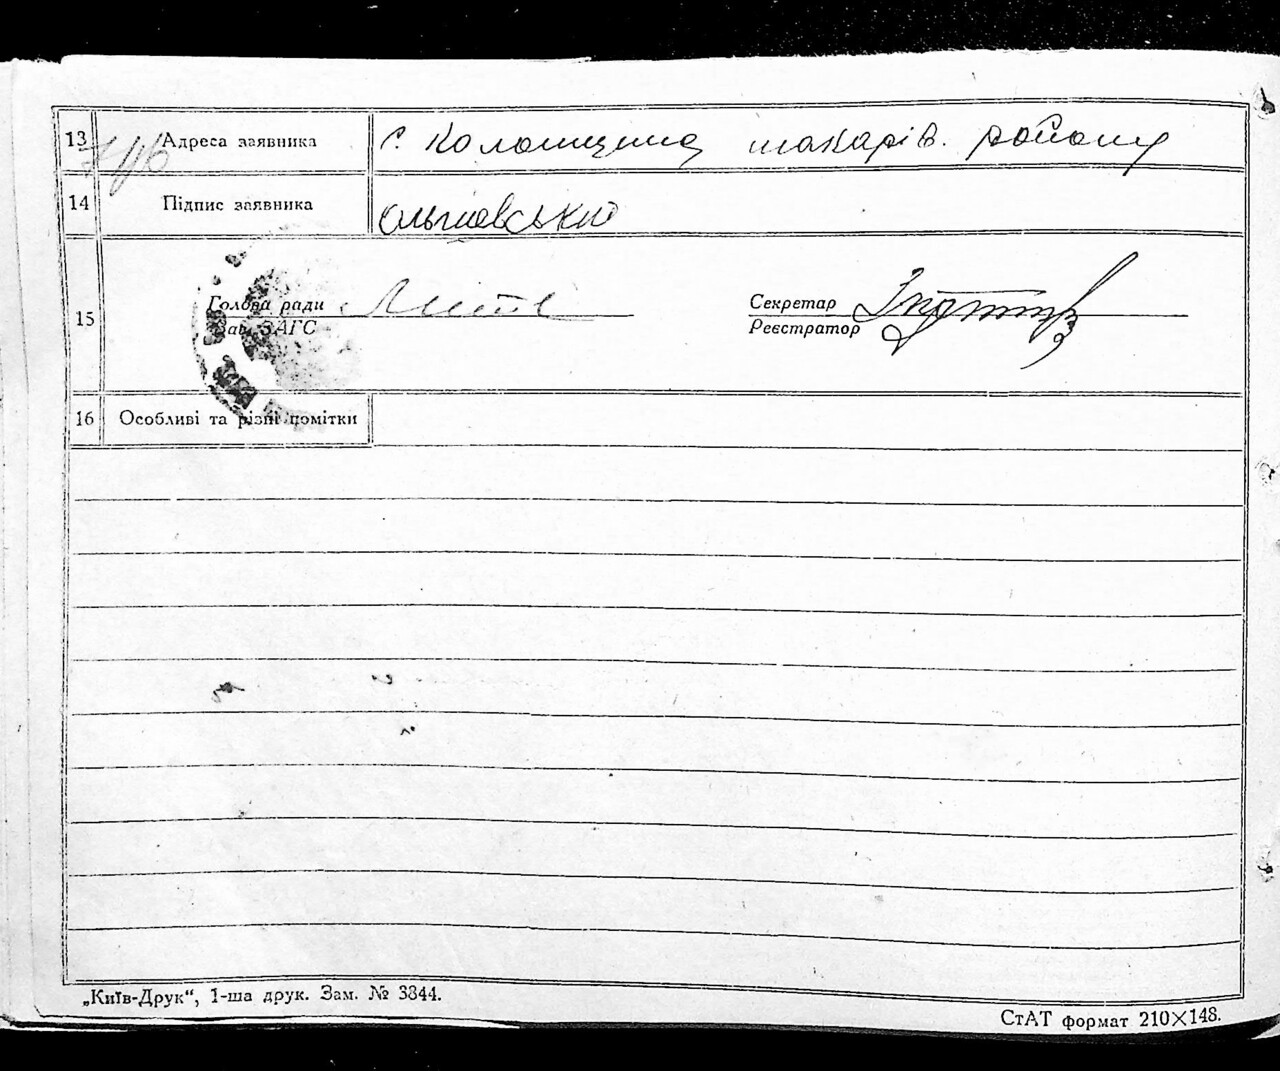 13 Адреса заявника с. Коломщина макарів. району
14 Підпис заявника Ольшевський
15 Голова ради
Зав. ЗАГС
Секретар
Реєстратор
16 Особливі та різні помітки
„Київ-Друк“, 1-ша друк. Зам. № 3844.
СтАТ формат 210×148.